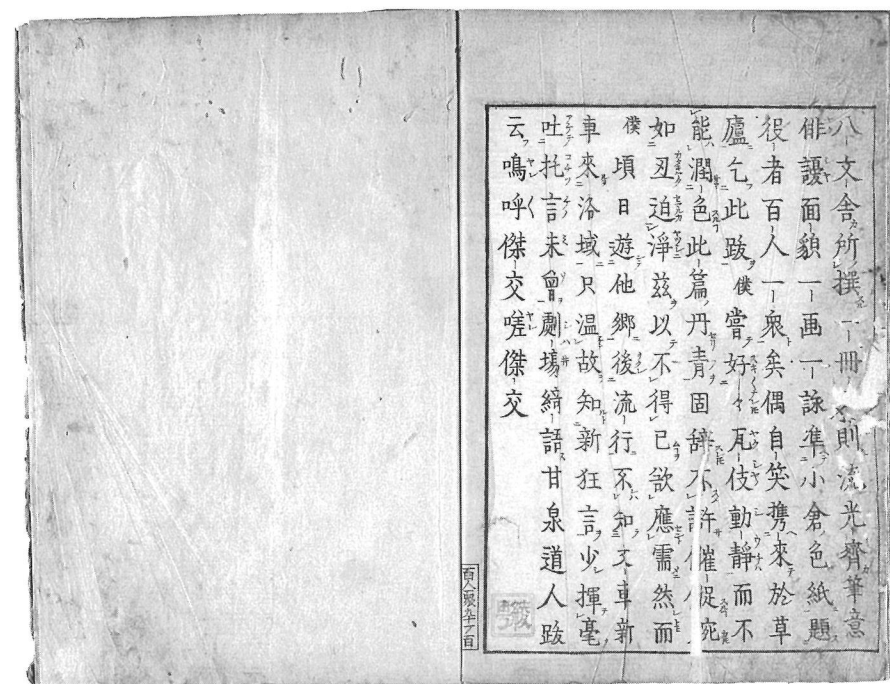 八文舎所撰一冊則流光齊筆意
俳諼面貌一画一詠準小倉色紙題
役者百人一衆矣偶自笑携來於草
廬乞此跋僕嘗好々瓦伎動靜而不
能潤色此篇丹青固辞不許催促宛
如丑迫淨茲以不得已欲應需然而
僕頃日遊他郷後流行不知車新
車來洛域只温故知新狂言少揮毫
吐托言未曾劇場綺語甘泉道人跋
云鳴呼傑交嗟傑交
百人一衆九十ノ百